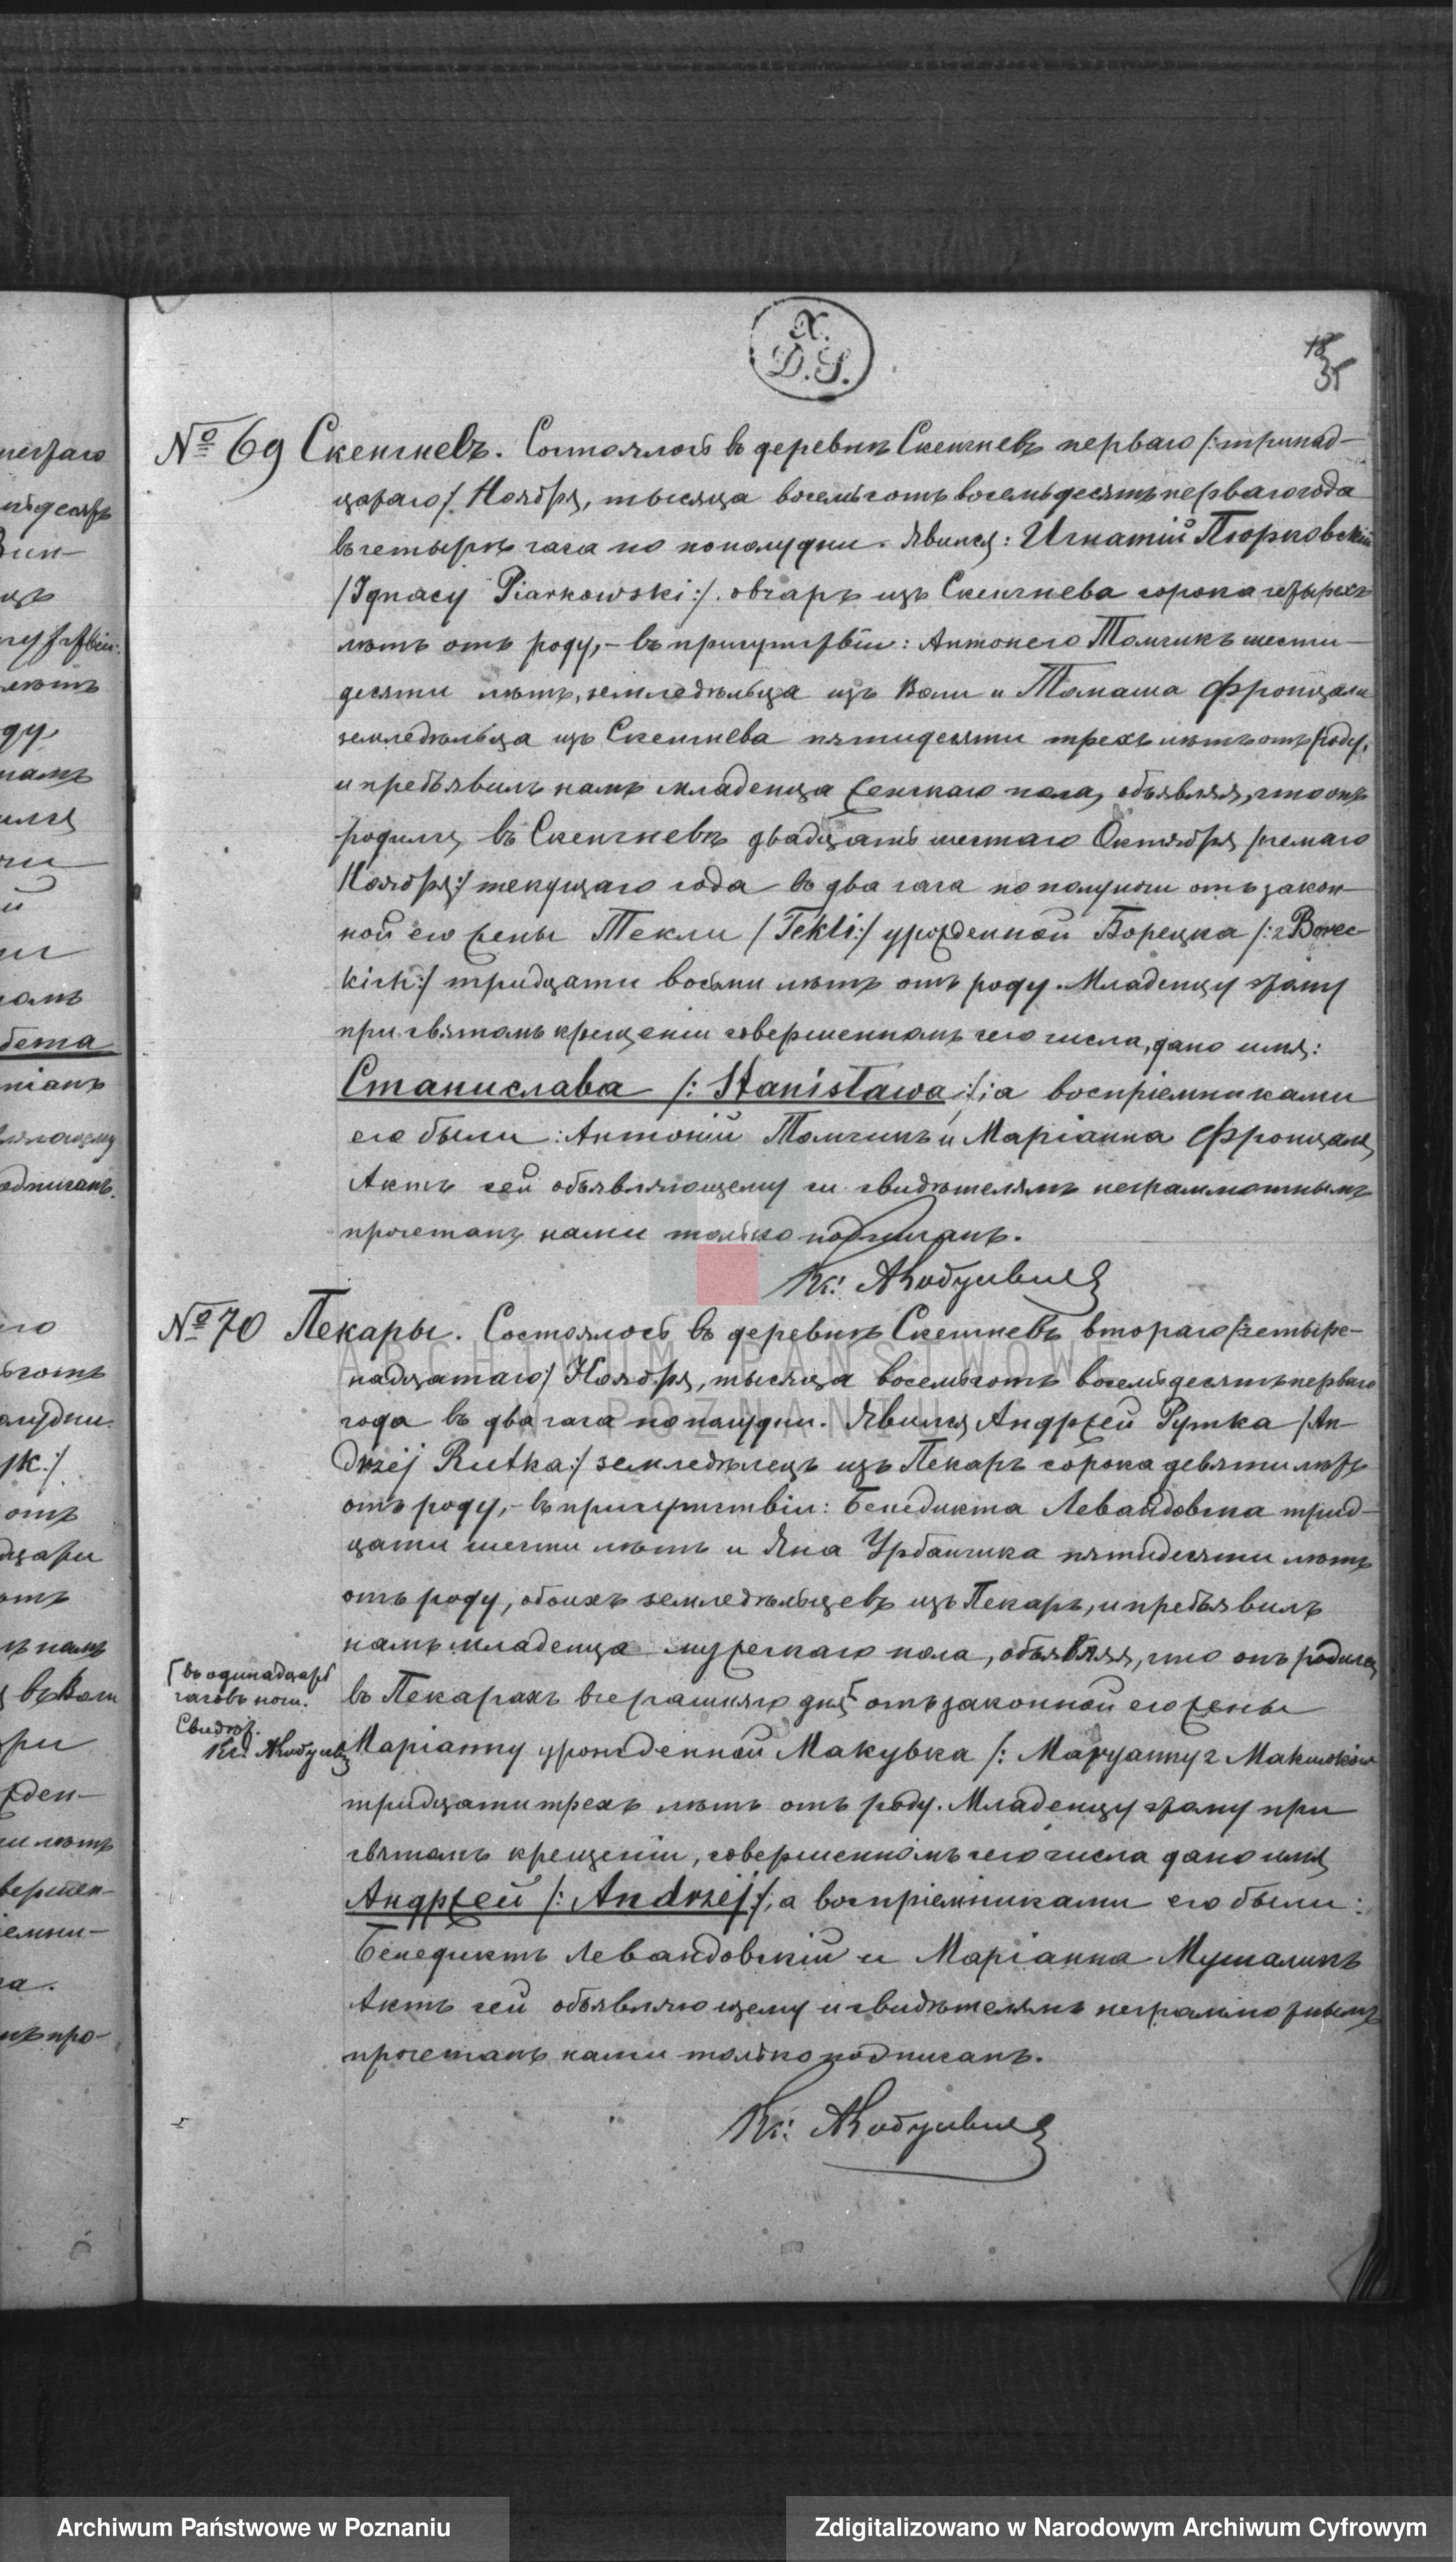 X.
D.S.
18
35
№ 69 Скенгневъ. Состоялось въ деревнѣ Скенгневѣ перваго /:тринад-
цатаго/ Ноября, тысяца восемьсотъ восемьдесятъ перваго года
въ четыре часа по пополудни. Явился: Игнатій Пюрковскій
/Ignacy Piarkowski:/. овчаръ изъ Скенгнева сорока четырехъ
лѣтъ отъ роду,- въ присутствіи: Антонего Томчикъ шести-
десяти лѣтъ, земледѣльца изъ Воли и Томаша Фронцала
земледѣльца изъ Скенгнева пятидесяти трехъ лѣтъ отъ роду,
и предъявилъ намъ младенца женскаго пола, объявляя, что онъ
родился въ Скенгневѣ двадцать шестаго Октября /седмаго
Ноября:/ текущаго года въ два часа по полуночи отъ закон-
ной его жены Текли /Tekli:/ урожденной Борецка /:z Borec-
kich:/ тридцати восьми лѣтъ отъ роду. Младенцу этому
при святомъ крещеніи совершенномъ сего числа, дано имя:
Станислава /: Stanisława :/; а воспріемниками
его были: Антоній Томчикъ и Маріанна Фронцала,
Актъ сей объявляющему и свидѣтелямъ неграмотнымъ
прочетанъ нами только подписанъ.
Кс:
№ 70 Пекары. Состоялось въ деревнѣ Скенгневѣ втораго /:четыре-
надцатаго/ Ноября, тысяца восемьсотъ восемьдесятъ перваго
ARCHIWUM PAŃSTWOWE
года въ два часа по полудни. Явился Андржей Рутка /An-
W POZNANIU
drzej Rutka:/ земледѣлецъ изъ Пекаръ сорока девяти лѣтъ
отъ роду,- въ присутствіи: Бенедикта Левандовска трид-
цати шести лѣтъ и Яна Урбанчика пятидесяти лѣтъ
отъ роду, обоихъ земледѣльцевъ изъ Пекаръ, и предъявилъ
намъ младенца мужескаго пола, объявляя, что онъ родился
въ Пекарахъ вчерашняго дня [ отъ законной его жены
[ въ одинадцать
часовъ ноч.
Свидѣт.
Кс:
Маріанну урожденной Макувка /: Маryanny z Makuwków
тридцати трехъ лѣтъ отъ роду. Младенцу этому при
святомъ крещеніи, совершенномъ сего числа дано имя
Андржей /: Andrzej:/, а воспріемниками его были:
Бенедиктъ Левандовскій и Маріанна Мушаликъ
Актъ сей объявляющему и свидѣтелямъ неграмотнымъ
прочетанъ нами только подписанъ.
Кс:
Archiwum Państwowe w Poznaniu
Zdigitalizowano w Narodowym Archiwum Cyfrowym